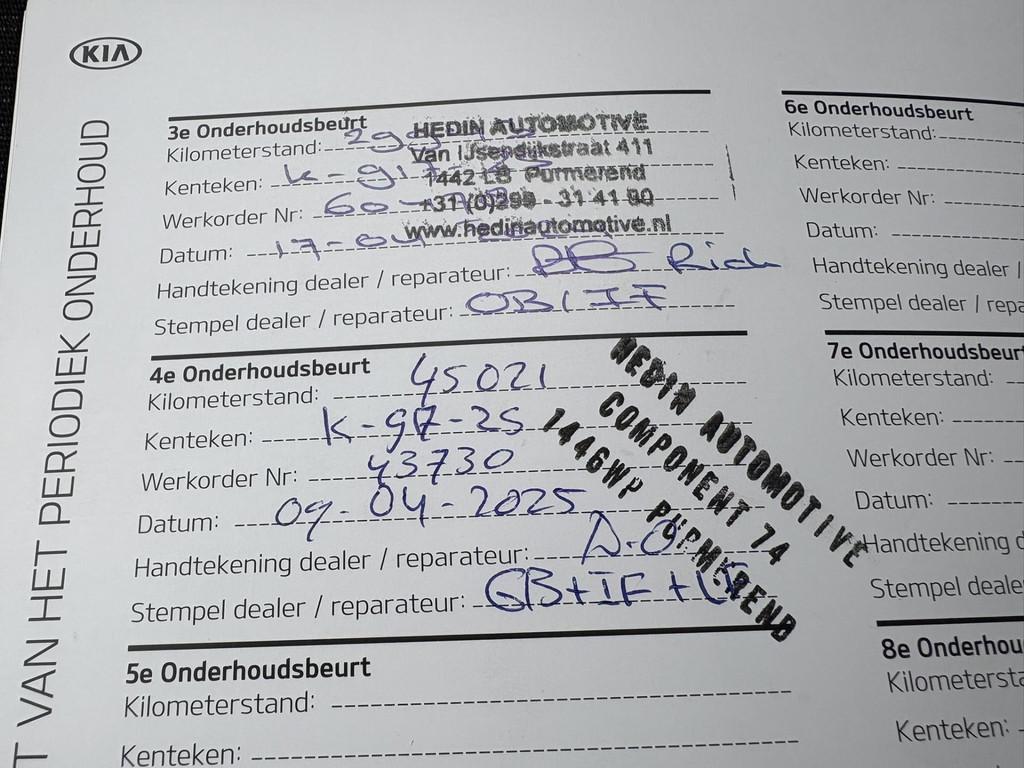 KIA
T VAN HET PERIODIEK ONDERHOUD
3e Onderhoudsbeurt
Kilometerstand:
Kenteken: K-
Werkorder Nr: 60-
Datum: 17-04
Handtekening dealer / reparateur: Rich
Stempel dealer / reparateur: OB/IF
HEDIN AUTOMOTIVE
Van IJsendijkstraat 411
1442 LB Purmerend
+31 (0)299 - 31 41 80
www.hedinautomotive.nl
4e Onderhoudsbeurt
Kilometerstand: 45021
Kenteken: K-97-25
Werkorder Nr: 43730
Datum: 09-04-2025
Handtekening dealer / reparateur:
Stempel dealer / reparateur: GB+IF+
HEDIN AUTOMOTIVE
COMPONENT 74
1446WP PURMEREND
5e Onderhoudsbeurt
Kilometerstand:
Kenteken:
6e Onderhoudsbeurt
Kilometerstand:
Kenteken:
Werkorder Nr:
Datum:
Handtekening dealer /
Stempel dealer / repa
7e Onderhoudsbeurt
Kilometerstand:
Kenteken:
Werkorder Nr:
Datum:
Handtekening d
Stempel deale
8e Onderhou
Kilometersta
Kenteken: